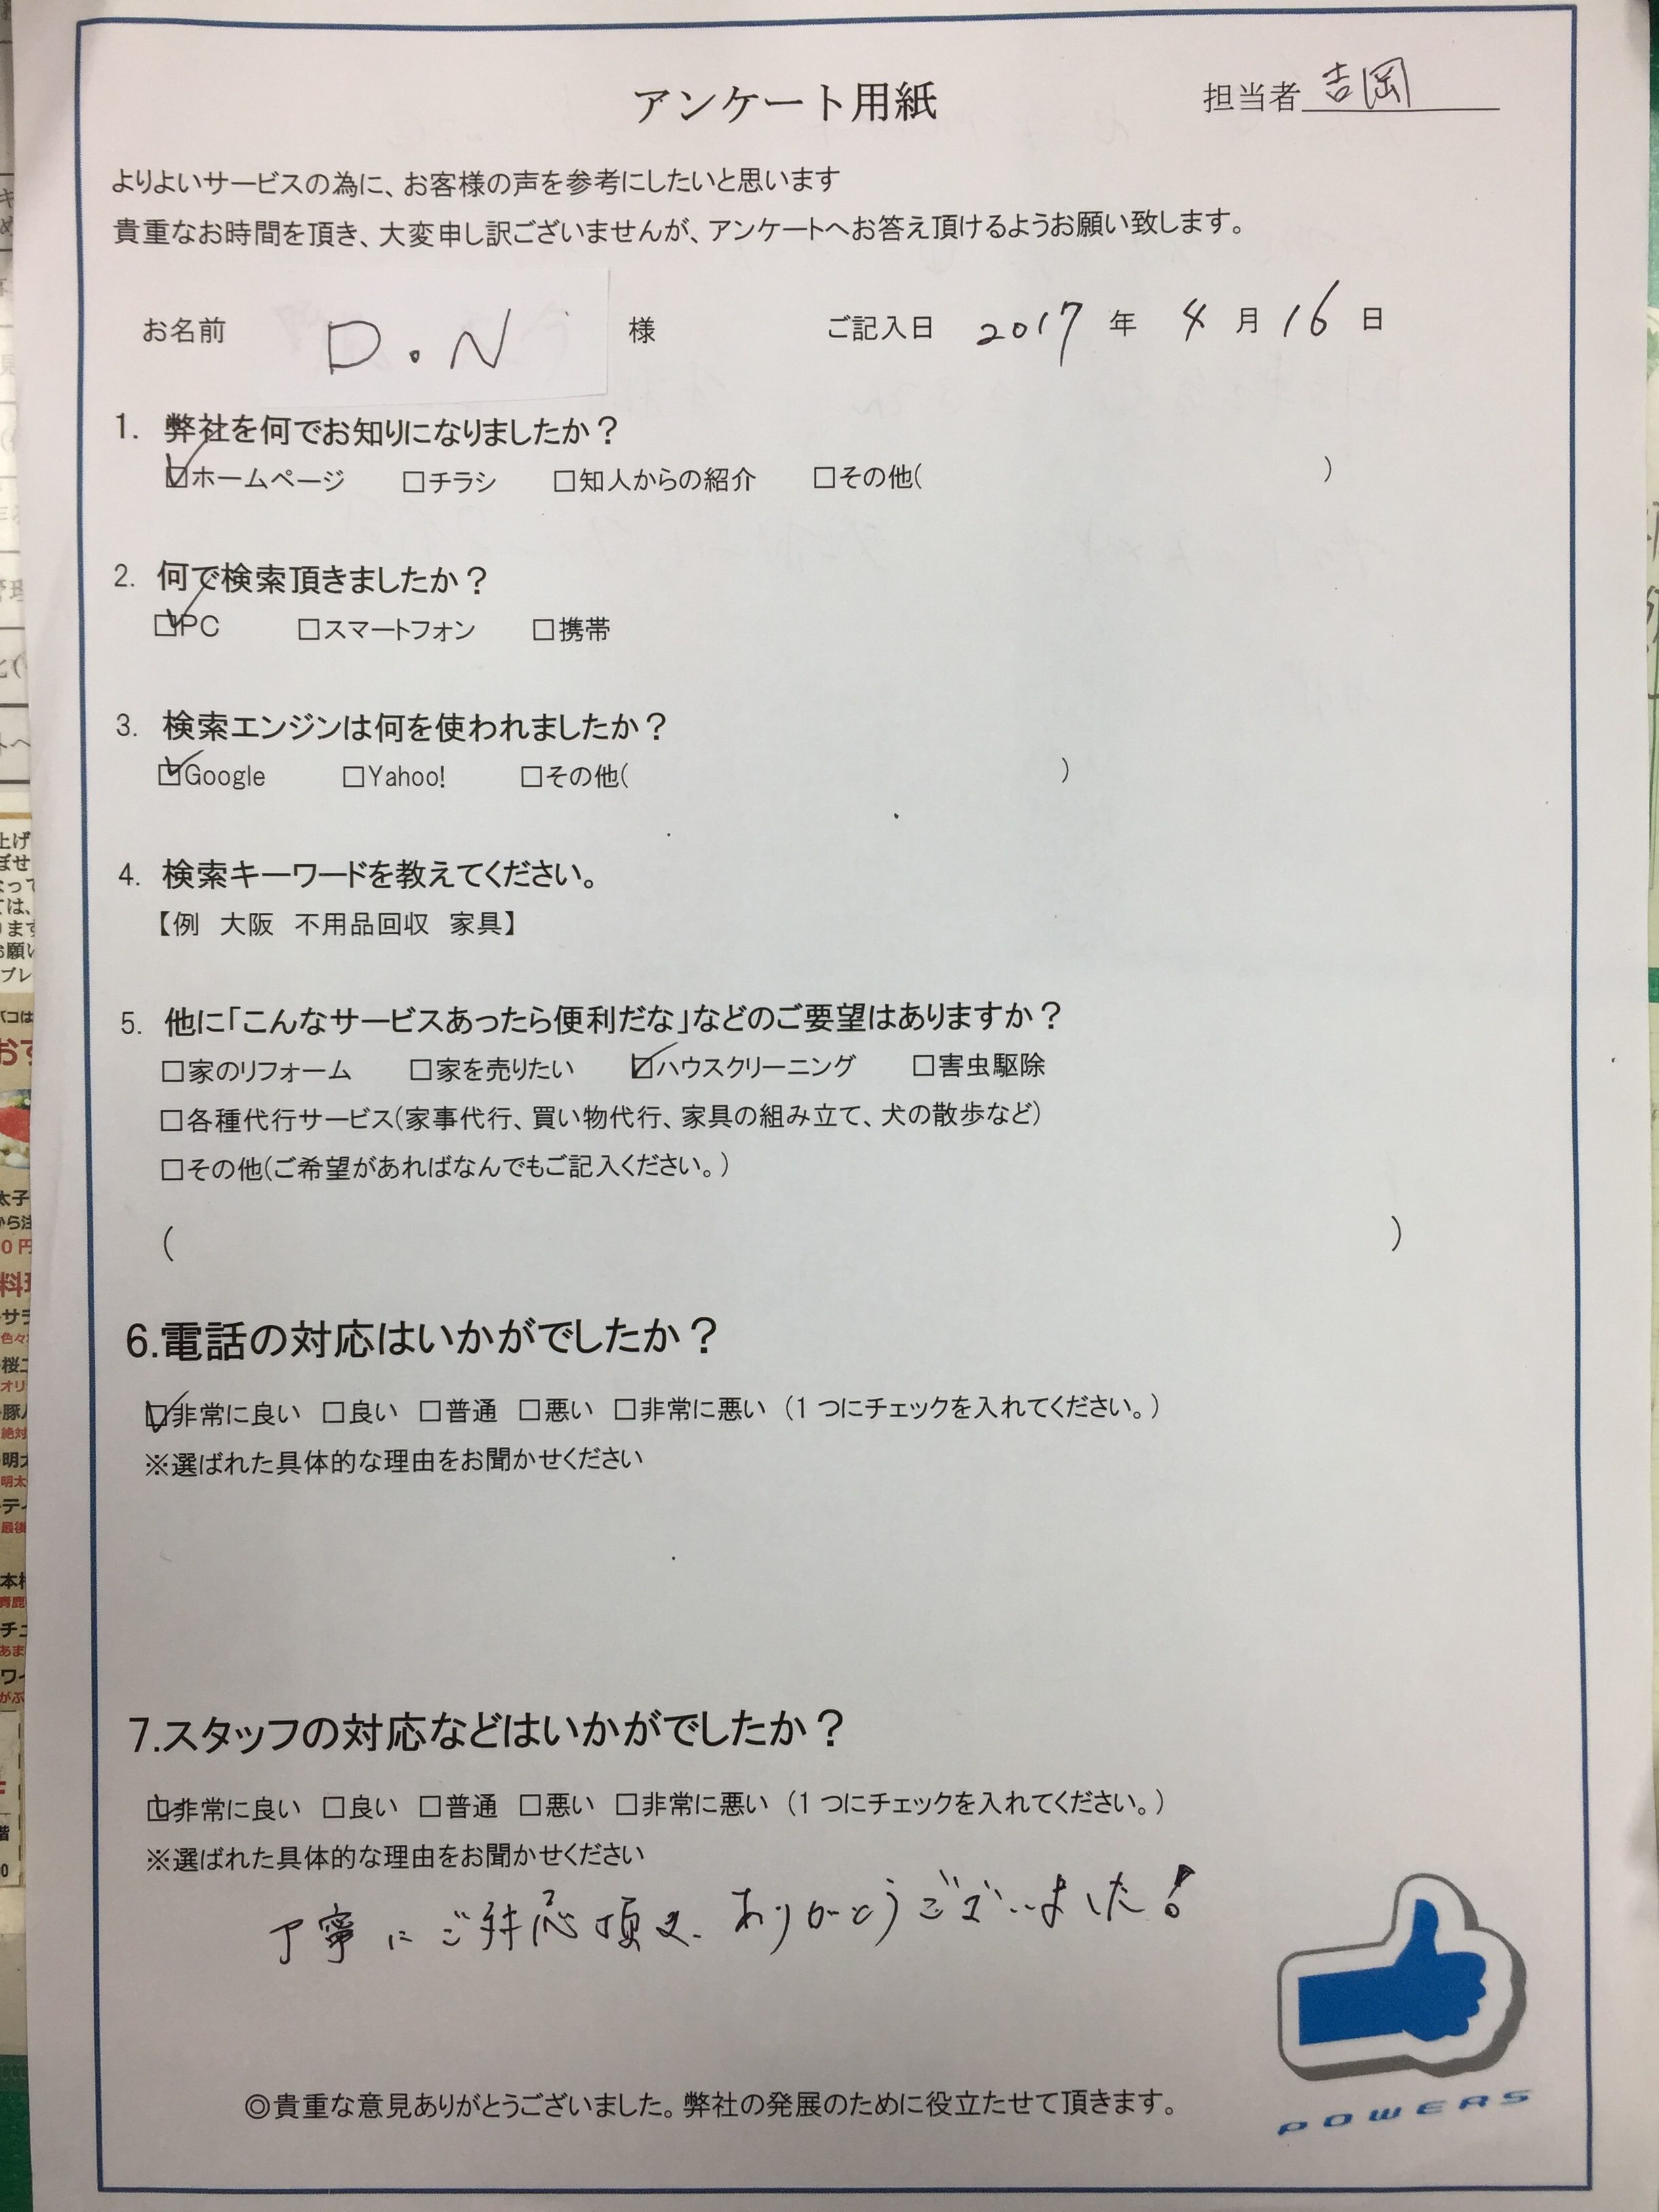 アンケート用紙
担当者 吉岡
よりよいサービスの為に、お客様の声を参考にしたいと思います
貴重なお時間を頂き、大変申し訳ございませんが、アンケートへお答え頂けるようお願い致します。
お名前 D.N 様 ご記入日 2017 年 4 月 16 日
1. 弊社を何でお知りになりましたか？
☑ホームページ □チラシ □知人からの紹介 □その他( )
2. 何で検索頂きましたか？
☑PC □スマートフォン □携帯
3. 検索エンジンは何を使われましたか？
☑Google □Yahoo! □その他( )
4. 検索キーワードを教えてください。
【例 大阪 不用品回収 家具】
5. 他に「こんなサービスあったら便利だな」などのご要望はありますか？
□家のリフォーム □家を売りたい ☑ハウスクリーニング □害虫駆除
□各種代行サービス(家事代行、買い物代行、家具の組み立て、犬の散歩など)
□その他(ご希望があればなんでもご記入ください。)
( )
6.電話の対応はいかがでしたか？
☑非常に良い □良い □普通 □悪い □非常に悪い (1つにチェックを入れてください。)
※選ばれた具体的な理由をお聞かせください
7.スタッフの対応などはいかがでしたか？
☑非常に良い □良い □普通 □悪い □非常に悪い (1つにチェックを入れてください。)
※選ばれた具体的な理由をお聞かせください
丁寧にご対応頂き、ありがとうございました！
◎貴重な意見ありがとうございました。弊社の発展のために役立たせて頂きます。
POWERS